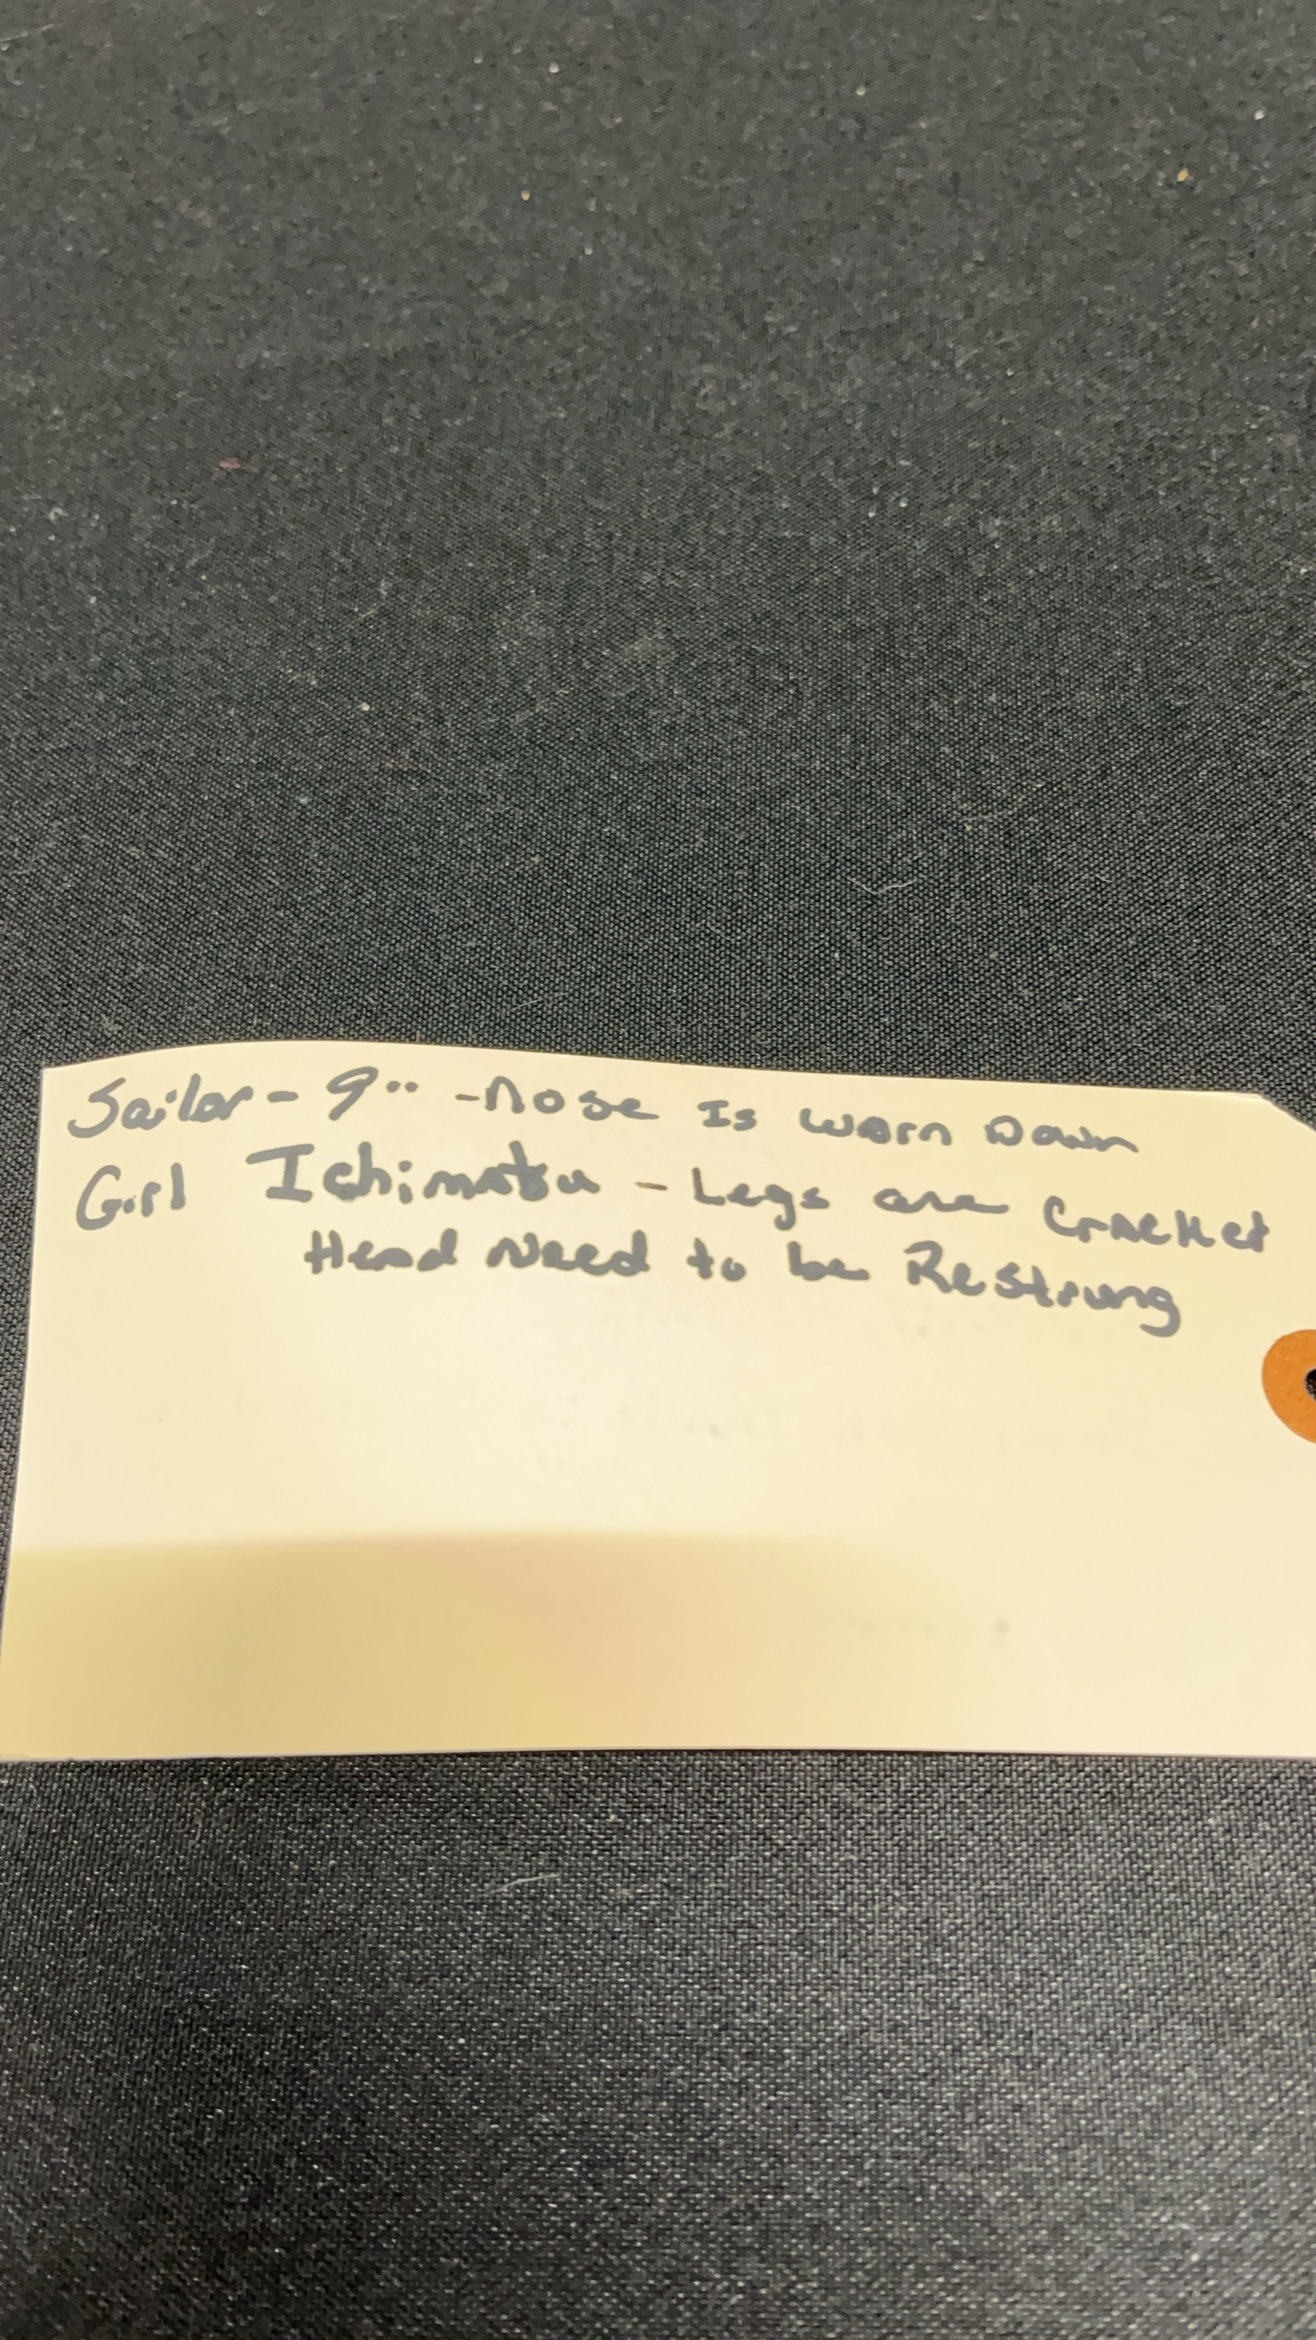 Sailor - 9" - Nose Is Worn Down
Girl Ichimatsu - Legs are Cracked
Head Need to be Restrung